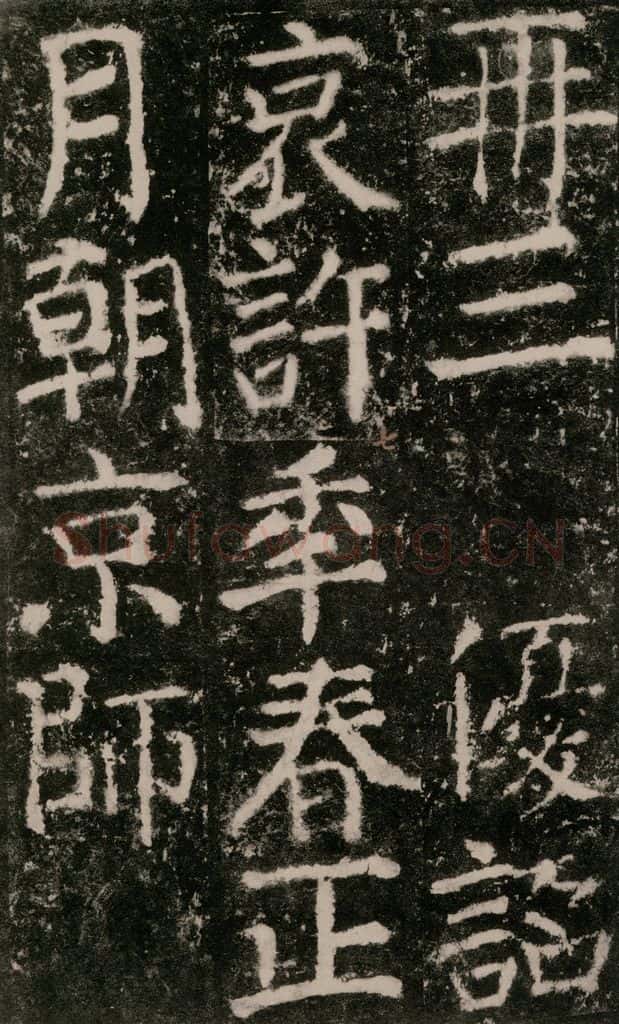 再三優詔
哀許秊春正
月朝京師
Shufawang.CN